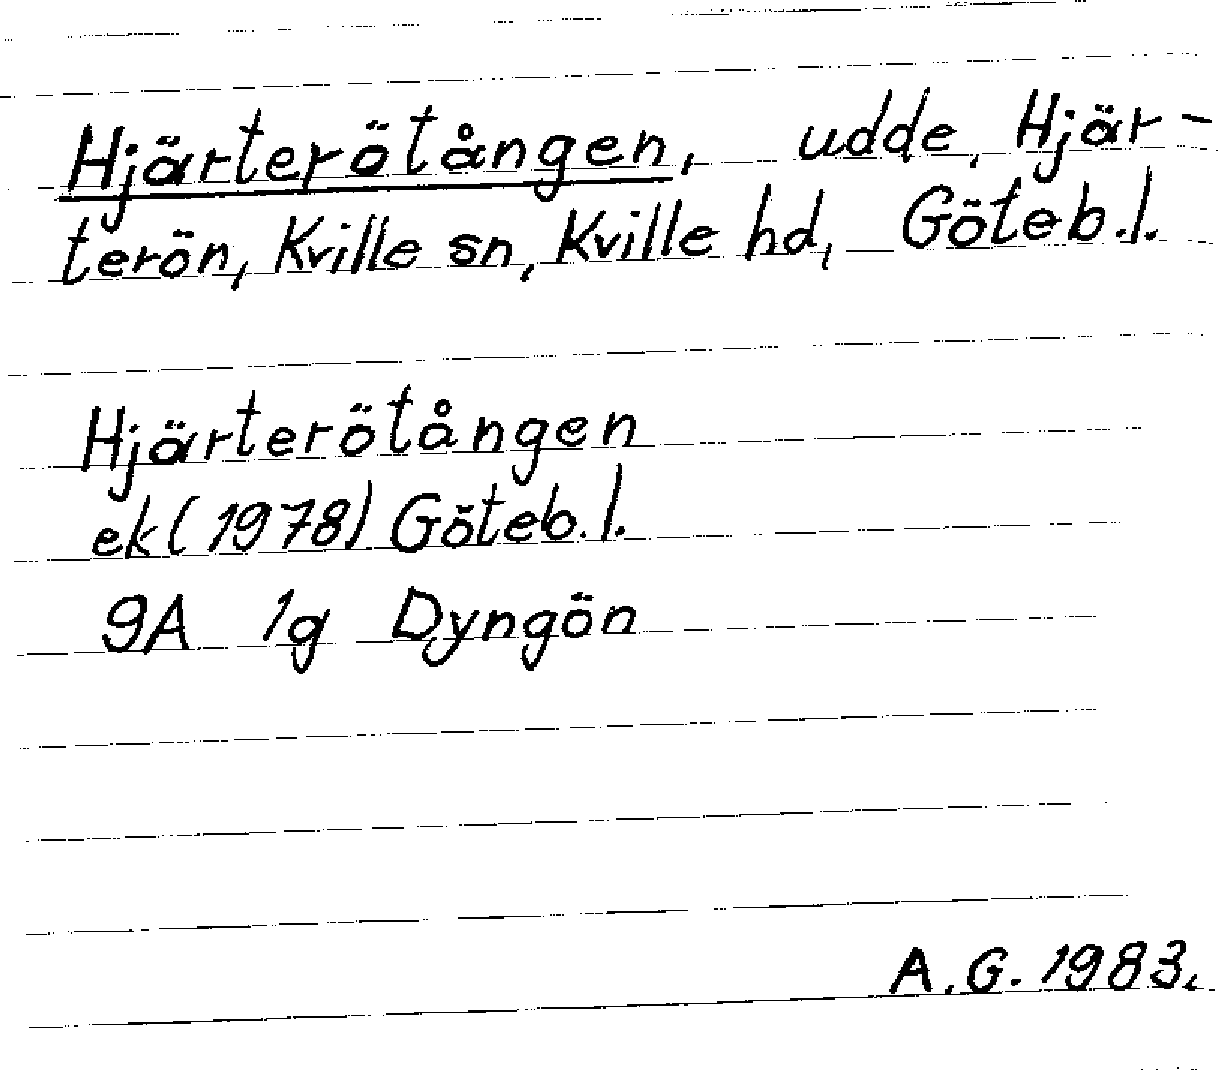 Hjärterötången, udde, Hjär-
terön, Kville sn, Kville hd, Göteb.l.
Hjärterötången
ek (1978) Göteb.l.
9A 1g Dyngön
A.G. 1983.